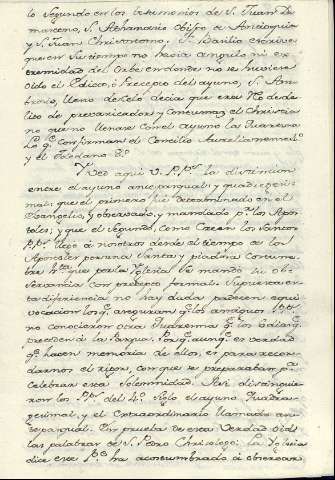 lo segundo en los testimonios de S. Juan Da
masceno, S. Athanasio Obispo de Antioquia
y S. Juan Chrisostomo. S. Basilio escrive
que en su tiempo no havia angulo ni ex
tremidad del Orbe en donde no se huviese
oido el Edicto, ó Precepto del ayuno, S. Am
brosio, lleno de zelo decia que era Rº de de
lito de prevaricador y contumaz el Christia
no que no llenase con el ayuno la Quaresma
Lo q.e confirman el Concilio Aurelianense 1.º
y el Toledano 8.º
Ved aqui V. P. P.es la distincion
entre el ayuno antepasqual y quadragesi
mal: que el primero fue determinado en el
Evangelio, y observado, y mandado p.r los Apos
toles; y que el segundo, como creen los Santos
P.P.es llegó á nosotros desde el tiempo de los
Apostoles por una Santa y piadosa costum
bre h.ta que por la Iglesia se mandó su ob
servancia con precepto formal. Supuesta es
ta diferiencia no hay duda padecen equi
vocacion los q.e aseguran q.e los antiguos P.P.es
no conocieron otra Quaresma q.e los dias q.e
preceden á la Pasqua. Por q.e aunq.e es verdad
q.e hacen memoria de ellos, es para recor
darnos el rigor, con que se preparaban p.a
celebrar esta Solemnidad. Asi distinguie
ron los P.es del 4.º Siglo el ayuno Quadra
gesimal, y el Extraordinario llamado an
tepasqual. En prueba de esta verdad oid
las palabras de S. Pedro Chrisologo: La Iglesia
dice este P.e ha acostumbrado á observar